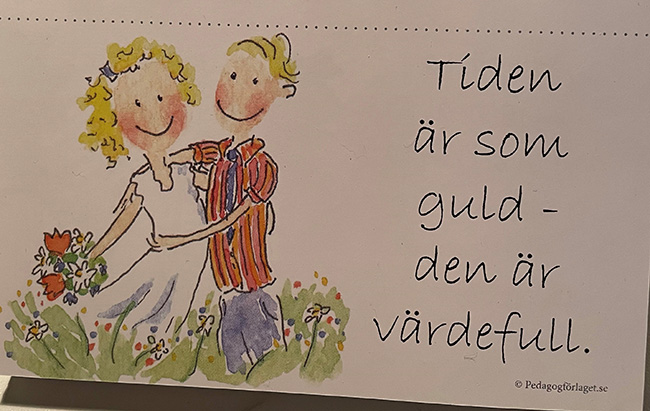 Tiden
är som
guld -
den är
värdefull.
© Pedagogförlaget.se